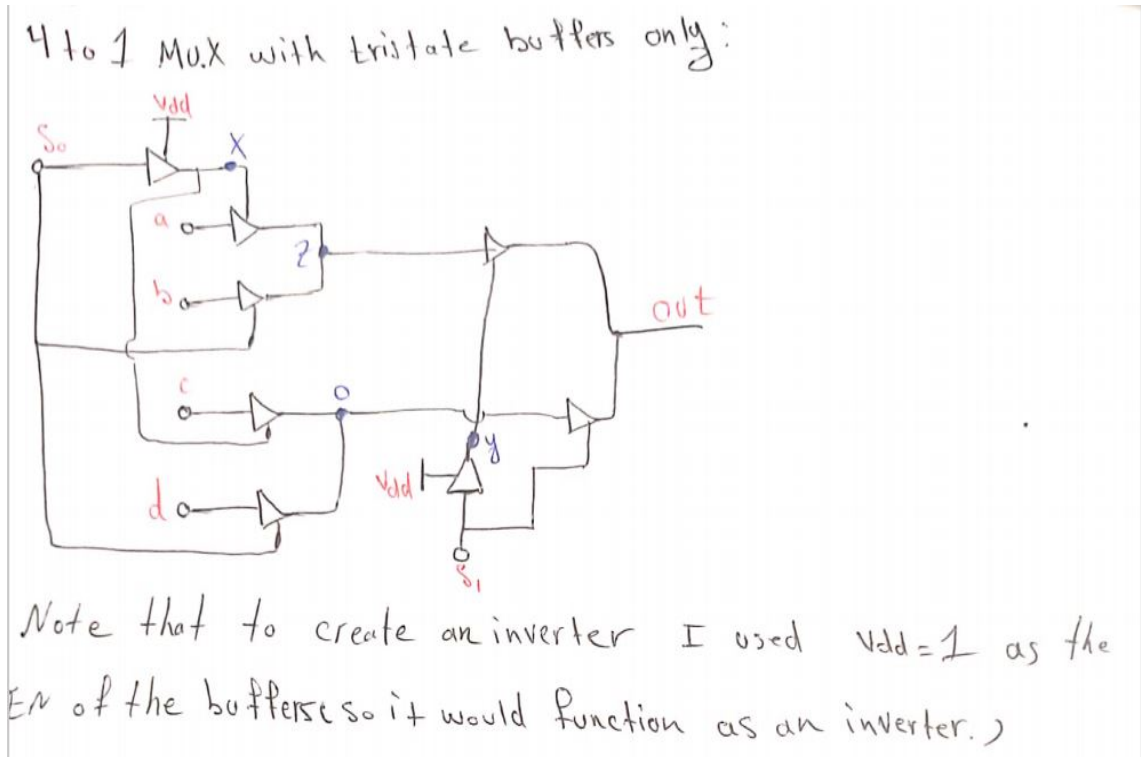 4 to 1 Mux with tristate buffers only:
Vdd
S0
X
a
Z
b
out
c
O
y
Vdd
d
S1
Note that to create an inverter I used Vdd = 1 as the
EN of the buffers so it would function as an inverter.)